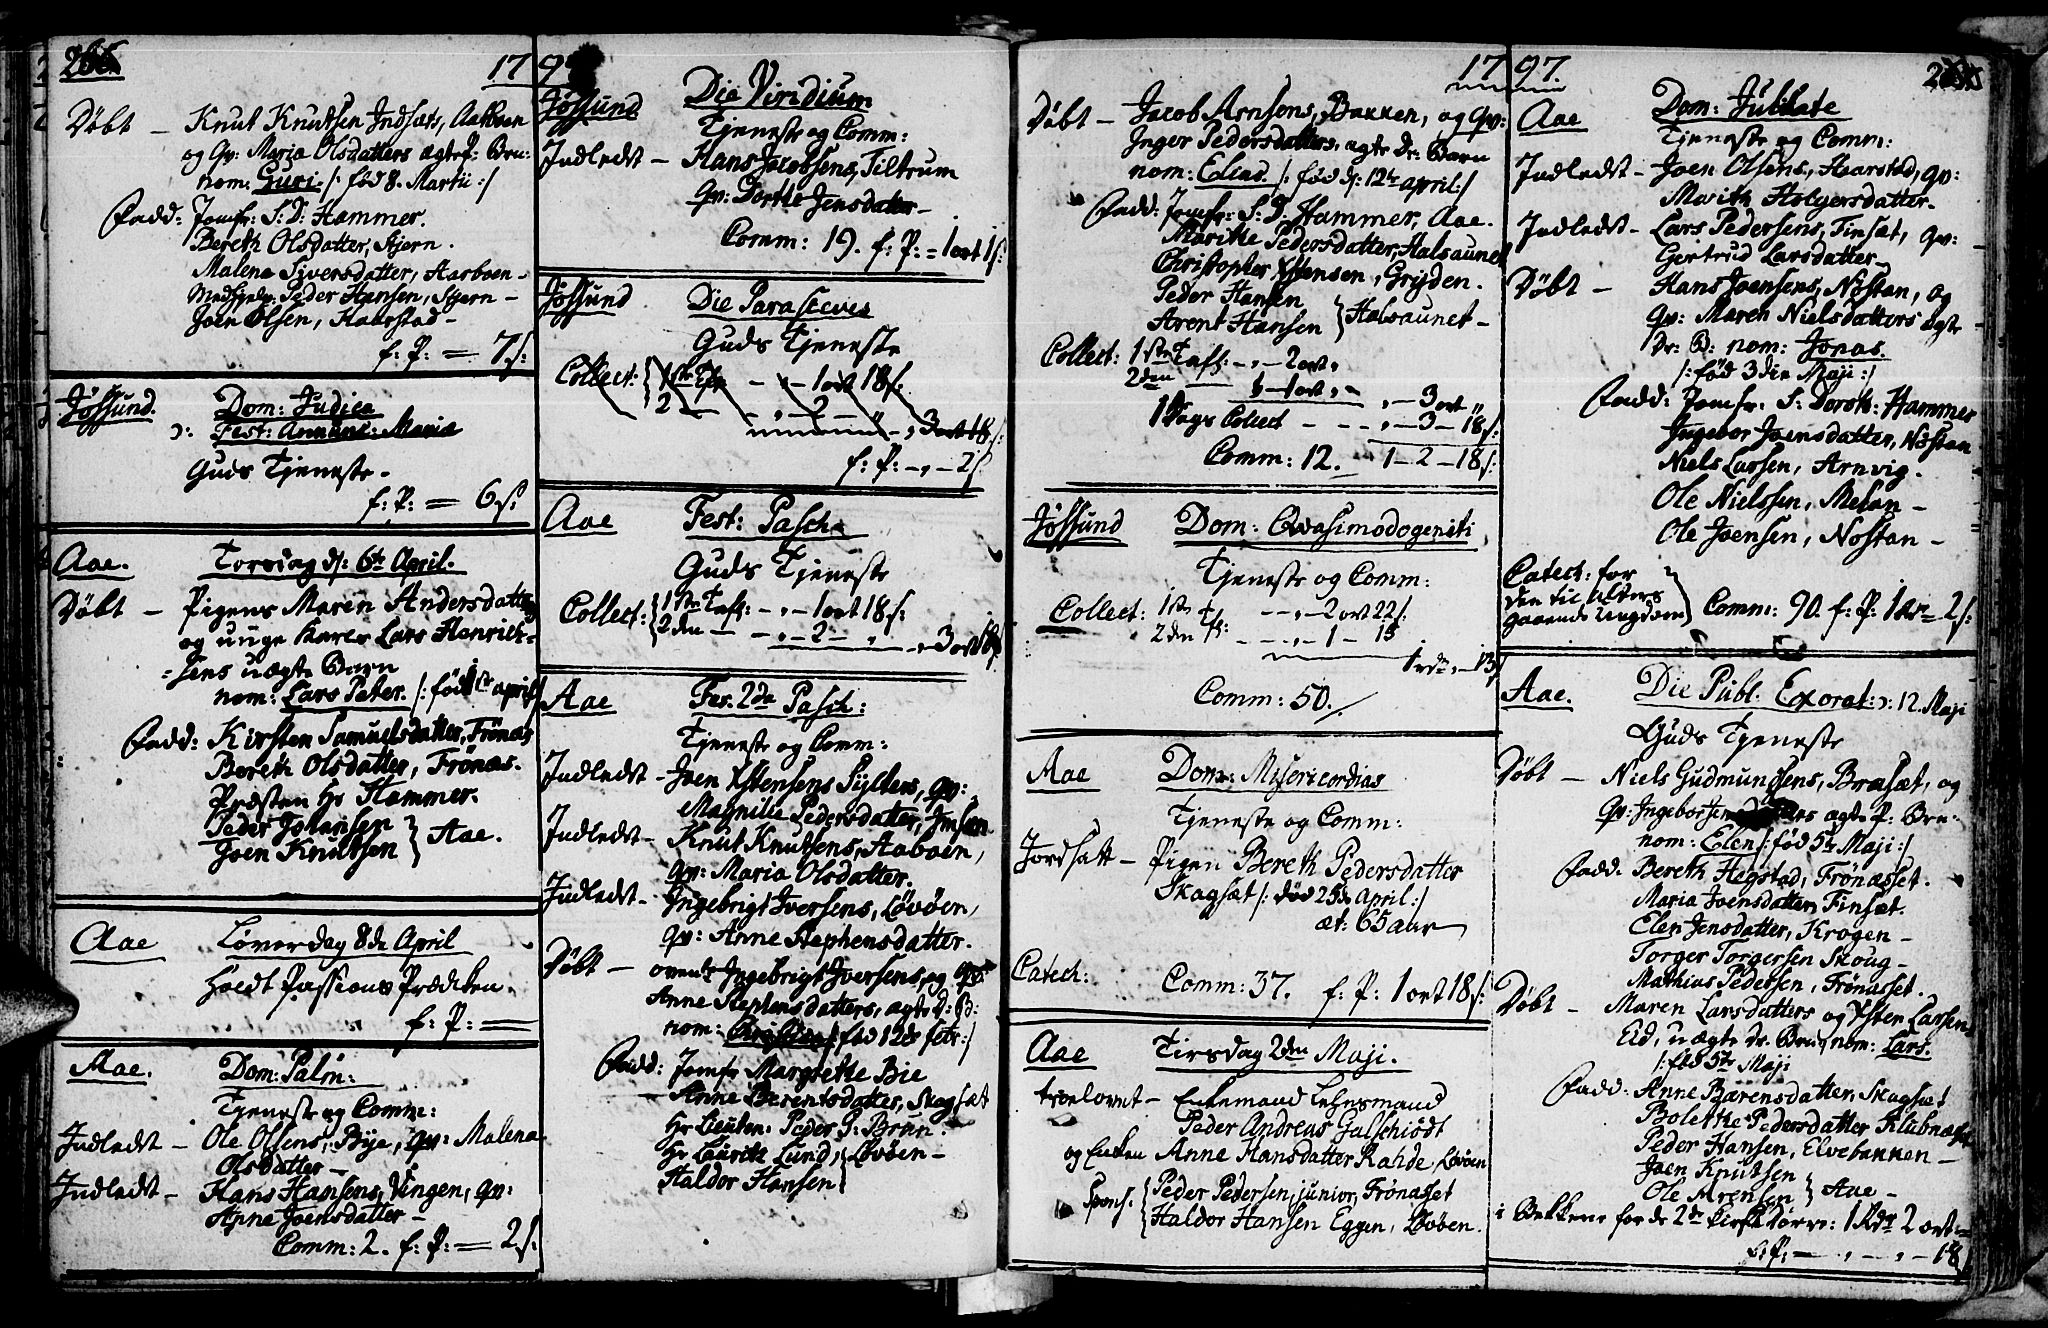 17 97
Døbt — Knut Knutsen Indsæts, Aaboen
og Qv: Maria Olsdatters ægtef: Bru:
nom: Guri. /: fød 8. Martii :/
Fadd: Jomfr: S: D: Hammer.
Bereth Olsdatter, Stjern.
Malena Siversdatter, Aasboen –
Peder Hansen, Stjern –
Joen Olsen, Haarstad –
f: P: = 7 s:
Jøssund. Dom: Judica
ɔ: Fest: Annunc: Maria
Guds Tjeneste –
f: P: = 6 s:
Aae. Torsdag d: 6te April.
Døbt — Pigens Maren Andersdatters
og unge Karls Lars Henrick-
sens uægte Barn
nom: Lars Peter. /: fød 1ste april :/
Fadd: Kirsten Samuelsdatter, Frönæs
Bereth Olsdatter, Frönæs.
Præsten Hr Hammer.
Peder Johansen
Joen Knutsen } Aae.
Aae Løverdag 8de April
Holdt Passions Prædiken.
f: P: =
Aae. Dom: Palm:
Tjeneste og Comm:
Indledt — Ole Olsens, Bye, qv: Malena
Olsdatter –
Indledt — Hans Hansens, Vingen, qv:
Anne Joensdatter –
Comm: 2. f: P: = 2 s:
Jøssund Die Viridium
Tjeneste og Comm:
Indledt — Hans Jacobsens, Tiltrum
qv: Dorthe Jensdatter –
Comm: 19. f: P: = 1 ort 1 s:
Jøssund Die Parasceves
Guds Tjeneste
Collect: { 1ste Tfl – „ – 1 ort 18 s:
2 — – „ – 2 – „ – „ 3 ort 18 s:
f: P: – „ – 2 s
Aae Fest: Pasch:
Guds Tjeneste
Collect: { 1ste Tafl: – „ – 1 ort 18 s:
2den — – „ – 2 – „ – „ 3 ort 18 s
Aae Fes. 2da Pasch:
Tjeneste og Comm:
Indledt — Joen Ystensens Sylters, qv:
Magnille Pedersdatter,
Indledt — Knut Knutsens, Aaboen,
qv: Maria Olsdatter.
Indledt — Ingebrigt Iversens, Løvöen,
qv: Anne Stephensdatter.
Døbt — ovens Ingebrigt Iversens, og qv:
Anne Stephensdatters, ægte d: B:
nom: Christian /: fød 12de febr :/
Fadd: Jomfr Margrethe Bie
Anne Berentsdatter, Skagsæt
Hr Lieuten: Peder G: Brun.
Hr Laurits Lund, } Løvöen –
Haldor Hansen
17 97.
Døbt — Jacob Arnsons, Bakken, og qv:
Inger Pedersdatters, ægte dr: Barn
nom: Elias. /: fød d: 12te april :/
Fadd: Jomfr: S: D: Hammer, Aae.
Marithe Pedersdatter, Halsaunet
Christopher Ystensen, Gryden.
Peder Hansen
Arent Hansen } Halsaunet –
Collect: 1ste Tafl: – „ – 2 ort „
2den — „ – 1 ort „ – „ – 3 ort „
Dags Collect – – – „ – 3 – 18 s:
Comm: 12. 1 – 2 – 18 s:
Jøssund Dom: Qvasimodogeniti
Tjeneste og Comm:
Collect: 1ste Tf: – „ – 2 ort 22 s:
2den Tfl: – „ – 1 – 15
1 rdr „ – 13 s
Comm: 50.
Aae Dom: Misericordias
Tjeneste og Comm:
Jordsatt — Pigen Bereth Pedersdatter
Skagsæt /: død 25de April :/
æt: 65 aar
Catech: Comm: 37. f: P: 1 ort 18 s:
Aae Tirsdag 2den Maji.
troelovet — Enkemand Lehnsmand
Peder Andreas Galschiödt
og Enken Anne Hansdatter Rahde, Løvöen
Spons: { Peder Pedersen, junior, Frönæsset
Haldor Hansen Eggen, Løvöen.
Aae Dom: Jubilate
Tjeneste og Comm:
Indledt — Joen Olsens, Haarstad, qv:
Marith Holgersdatter.
Indledt — Lars Pedersens, Finsæt, qv:
Gjertrud Larsdatter –
Døbt — Hans Joensens, Nöstan, og
qv: Maren Nielsdatters ægte
Dr: B: nom: Jonas.
/: fød 3die Maji :/
Fadd: Jomfr: S: Doroth: Hammer
Ingebor Joensdatter, Nöstan
Niels Larsen, Arnvig.
Ole Nielssen, Melan –
Ole Joensen, Nöstan –
Catech: for
den til Alters
gaaende Ungdom } Comm: 90. f: P: 1 kr – 2 s:
Aae. Die Publ: Exorat: ɔ: 12. Maji
Guds Tjeneste
Døbt — Niels Gudmundsens, Bræsæt, og
Qv: Ingebor ægte P: Bru:
nom: Elen /: fød 5te Maji :/
Fadd. Bereth Hegstad, Frönæsset.
Maria Joensdatter, Finsæt.
Elen Jensdatter, Krogen –
Torger Torgersen Skoug –
Mathias Pedersen, Frönæsset.
Døbt — Maren Larsdatters og Ysten Larsens
Eid, uægte dr: Bru, nom: Lars.
/: fød 5te Maji
Fadd. Anne Bærensdatter, Skagsæt
Bolette Pedersdatter Klubnæset
Peder Hansen, Elvebakken –
Joen Knutsen
Ole Arensen } Aae –
i Bekkene for de 2de Kirkedørre: 1 Rdr 2 ort =
f: P: – „ – „ – 18